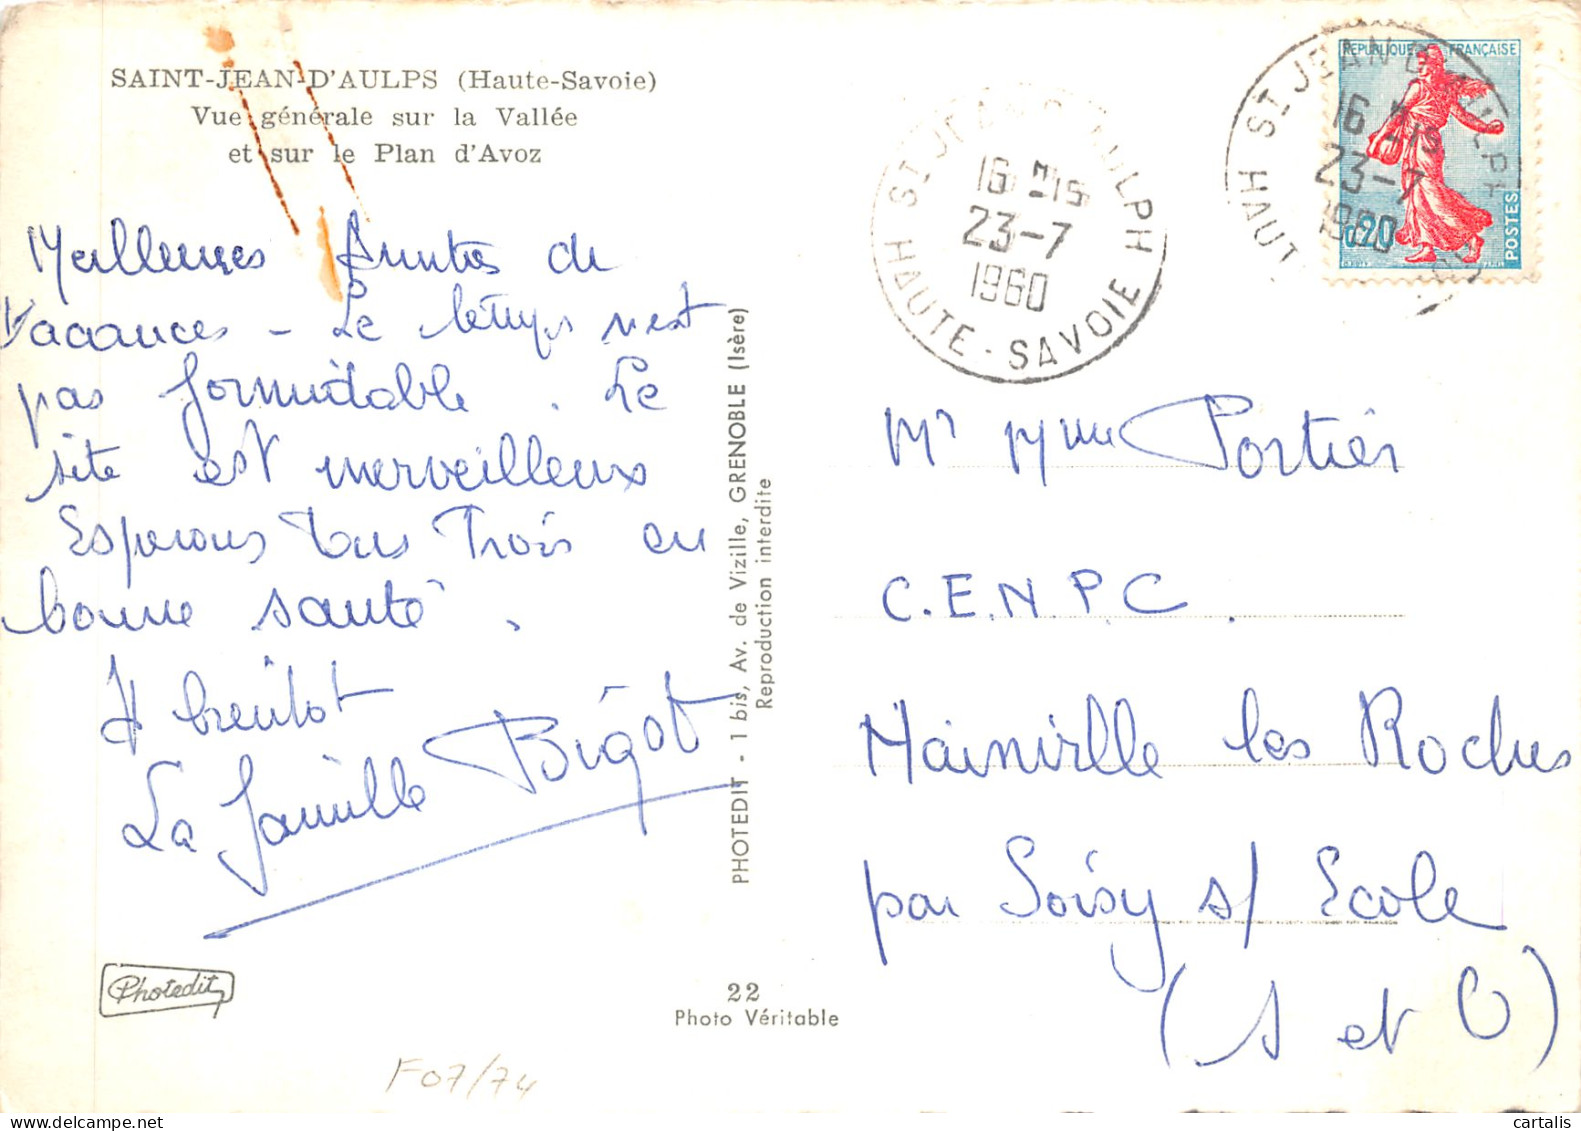 SAINT-JEAN-D'AULPS (Haute-Savoie)
Vue générale sur la Vallée
et sur le Plan d'Avoz
Meilleures Amitiés de
Vacances - Le temps n'est
pas formidable. Le
site est merveilleux
Esperons tous trois en
bonne santé.
A bientot
La famille Bigot
Photedit
F07/74
PHOTEDIT - 1 bis, Av. de Vizille, GRENOBLE (Isère)
Reproduction interdite
22
Photo Véritable
ST JEAN D'AULPH
16 H 15
23-7
1960
HAUTE-SAVOIE
ST JEAN D'AULPH
16 H 15
23-7
1960
HAUTE
REPUBLIQUE FRANÇAISE
0,20
POSTES
Mr Mme Portier
C.E.N.P.C.
Mainville les Roches
par Soisy s/ Ecole
(S et O)
cartalis